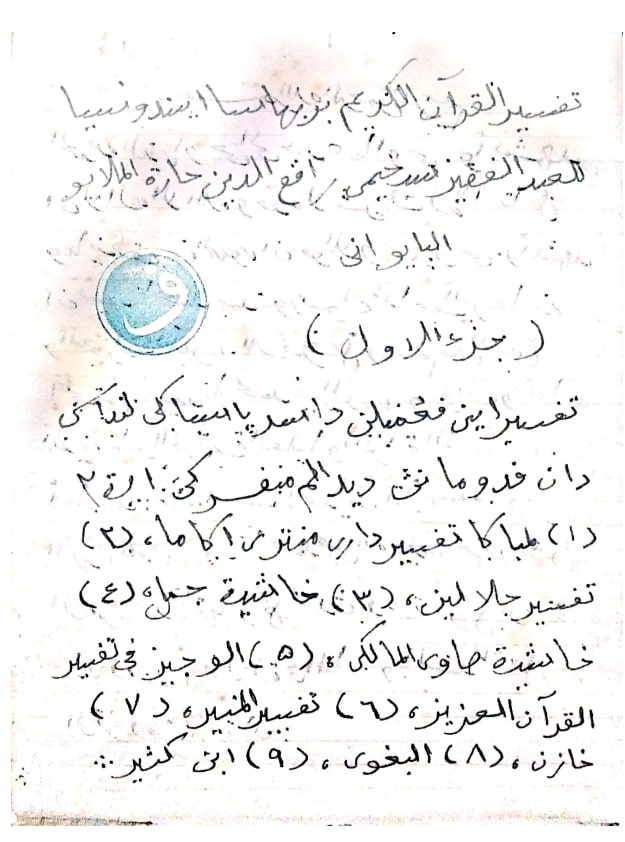 تفسير القرآن الكريم بربهاسا ايندونسيا
للعبد الفقير افع الدين حارة الملايو
البايواني
(جزء الاول)
تفسير اين فغمبيلن دا
دان فدومانث ديدالم منفسركن ايرة ٢
(١) تفسير داري منتري اكاما، (٢)
تفسير جلالين، (٣) خاشية جمل، (٤)
خاشية صاوى المالكى، (٥) الوجيز فى تفسير
القرآن العزيز، (٦) تفسير المنير، (٧)
خازن، (٨) البغوى، (٩) ابن كثير